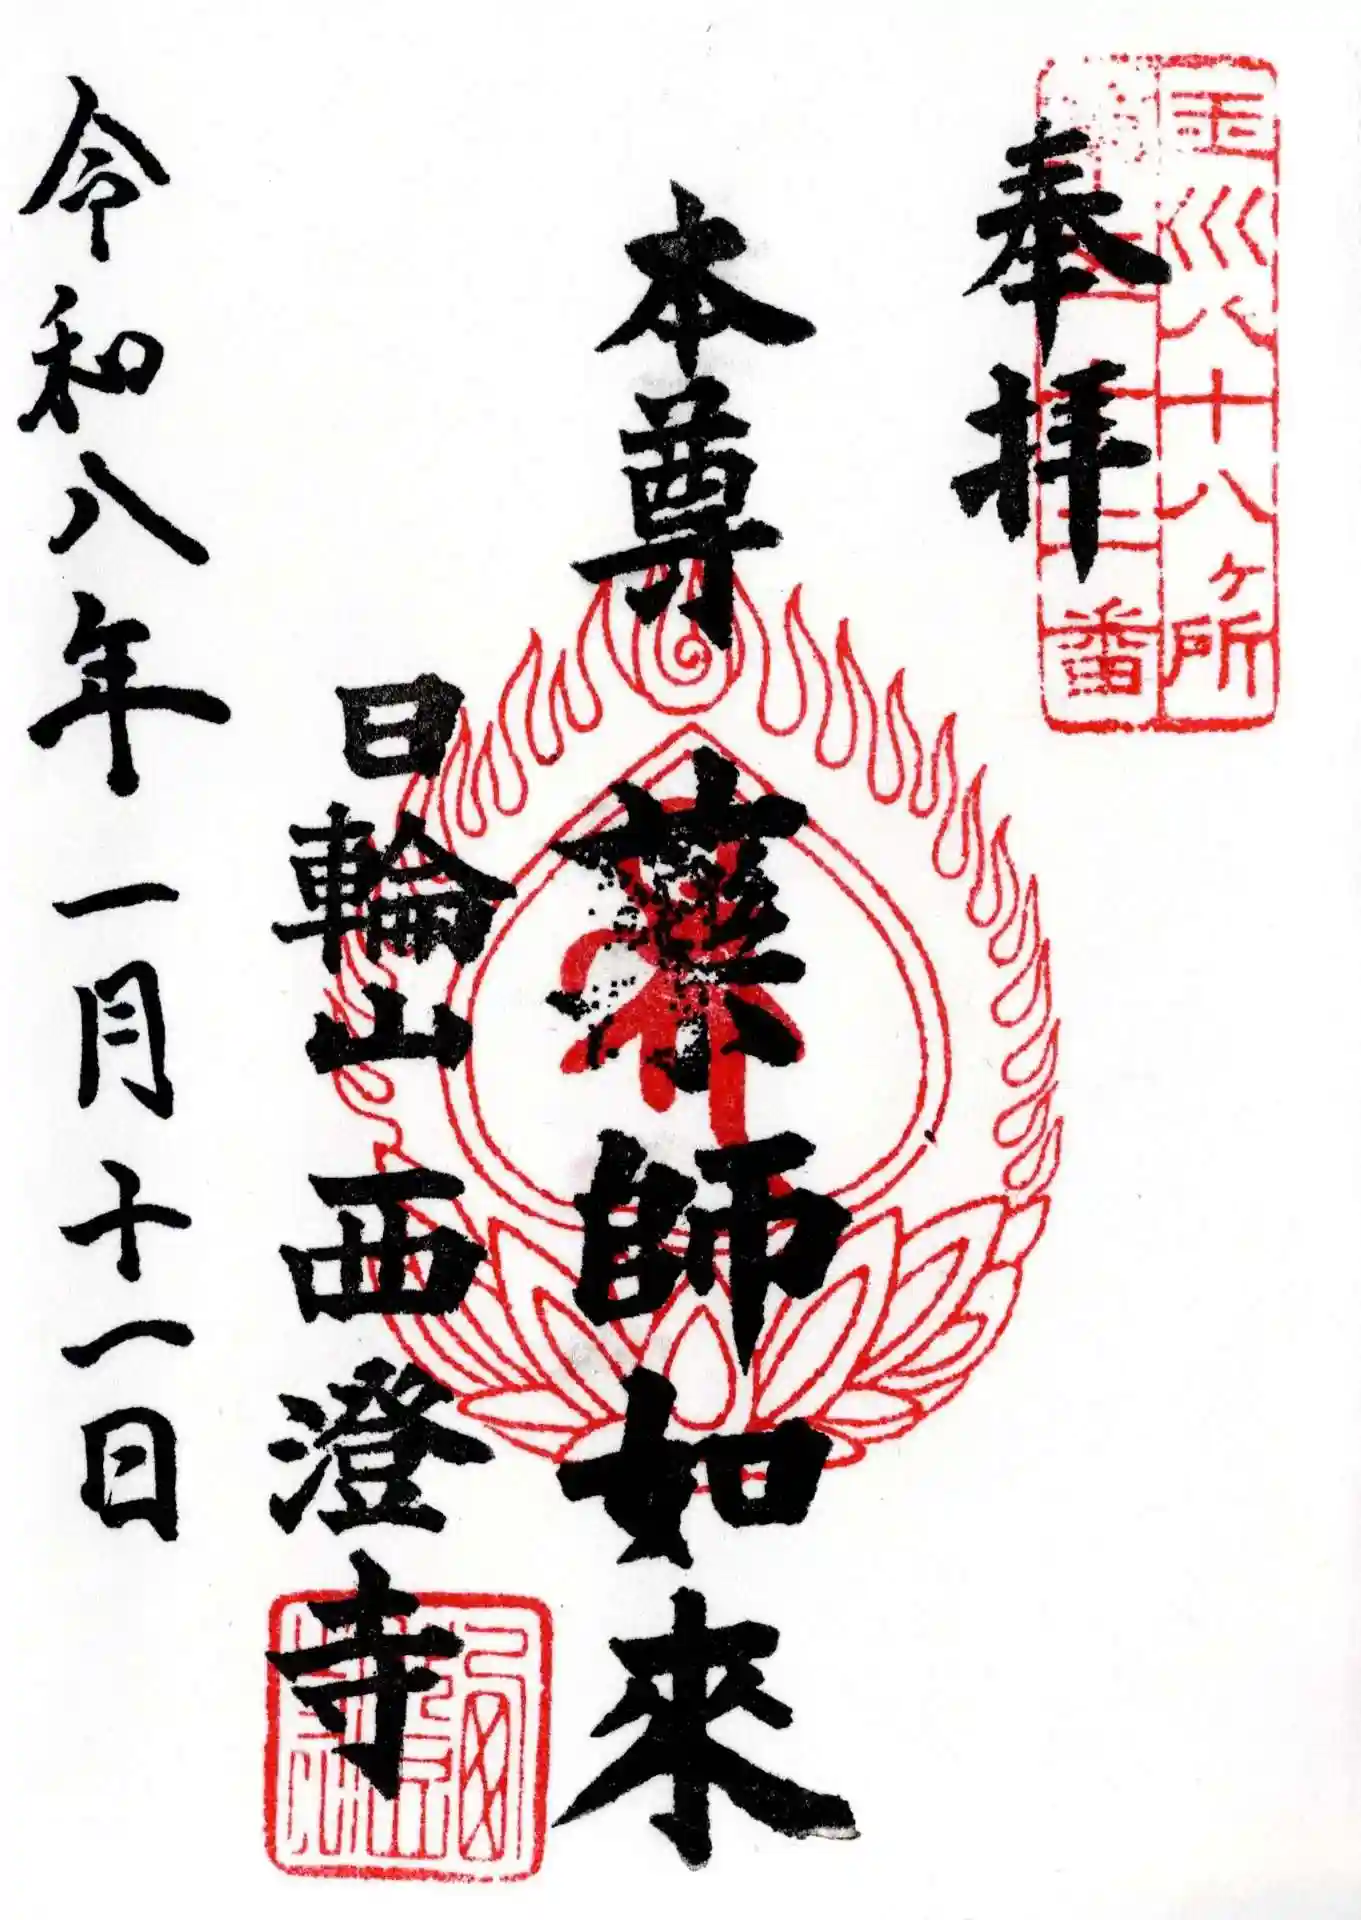 玉川八十八ヶ所
番
奉拝
本尊 薬師如来
日輪山 西澄寺
令和八年一月十一日